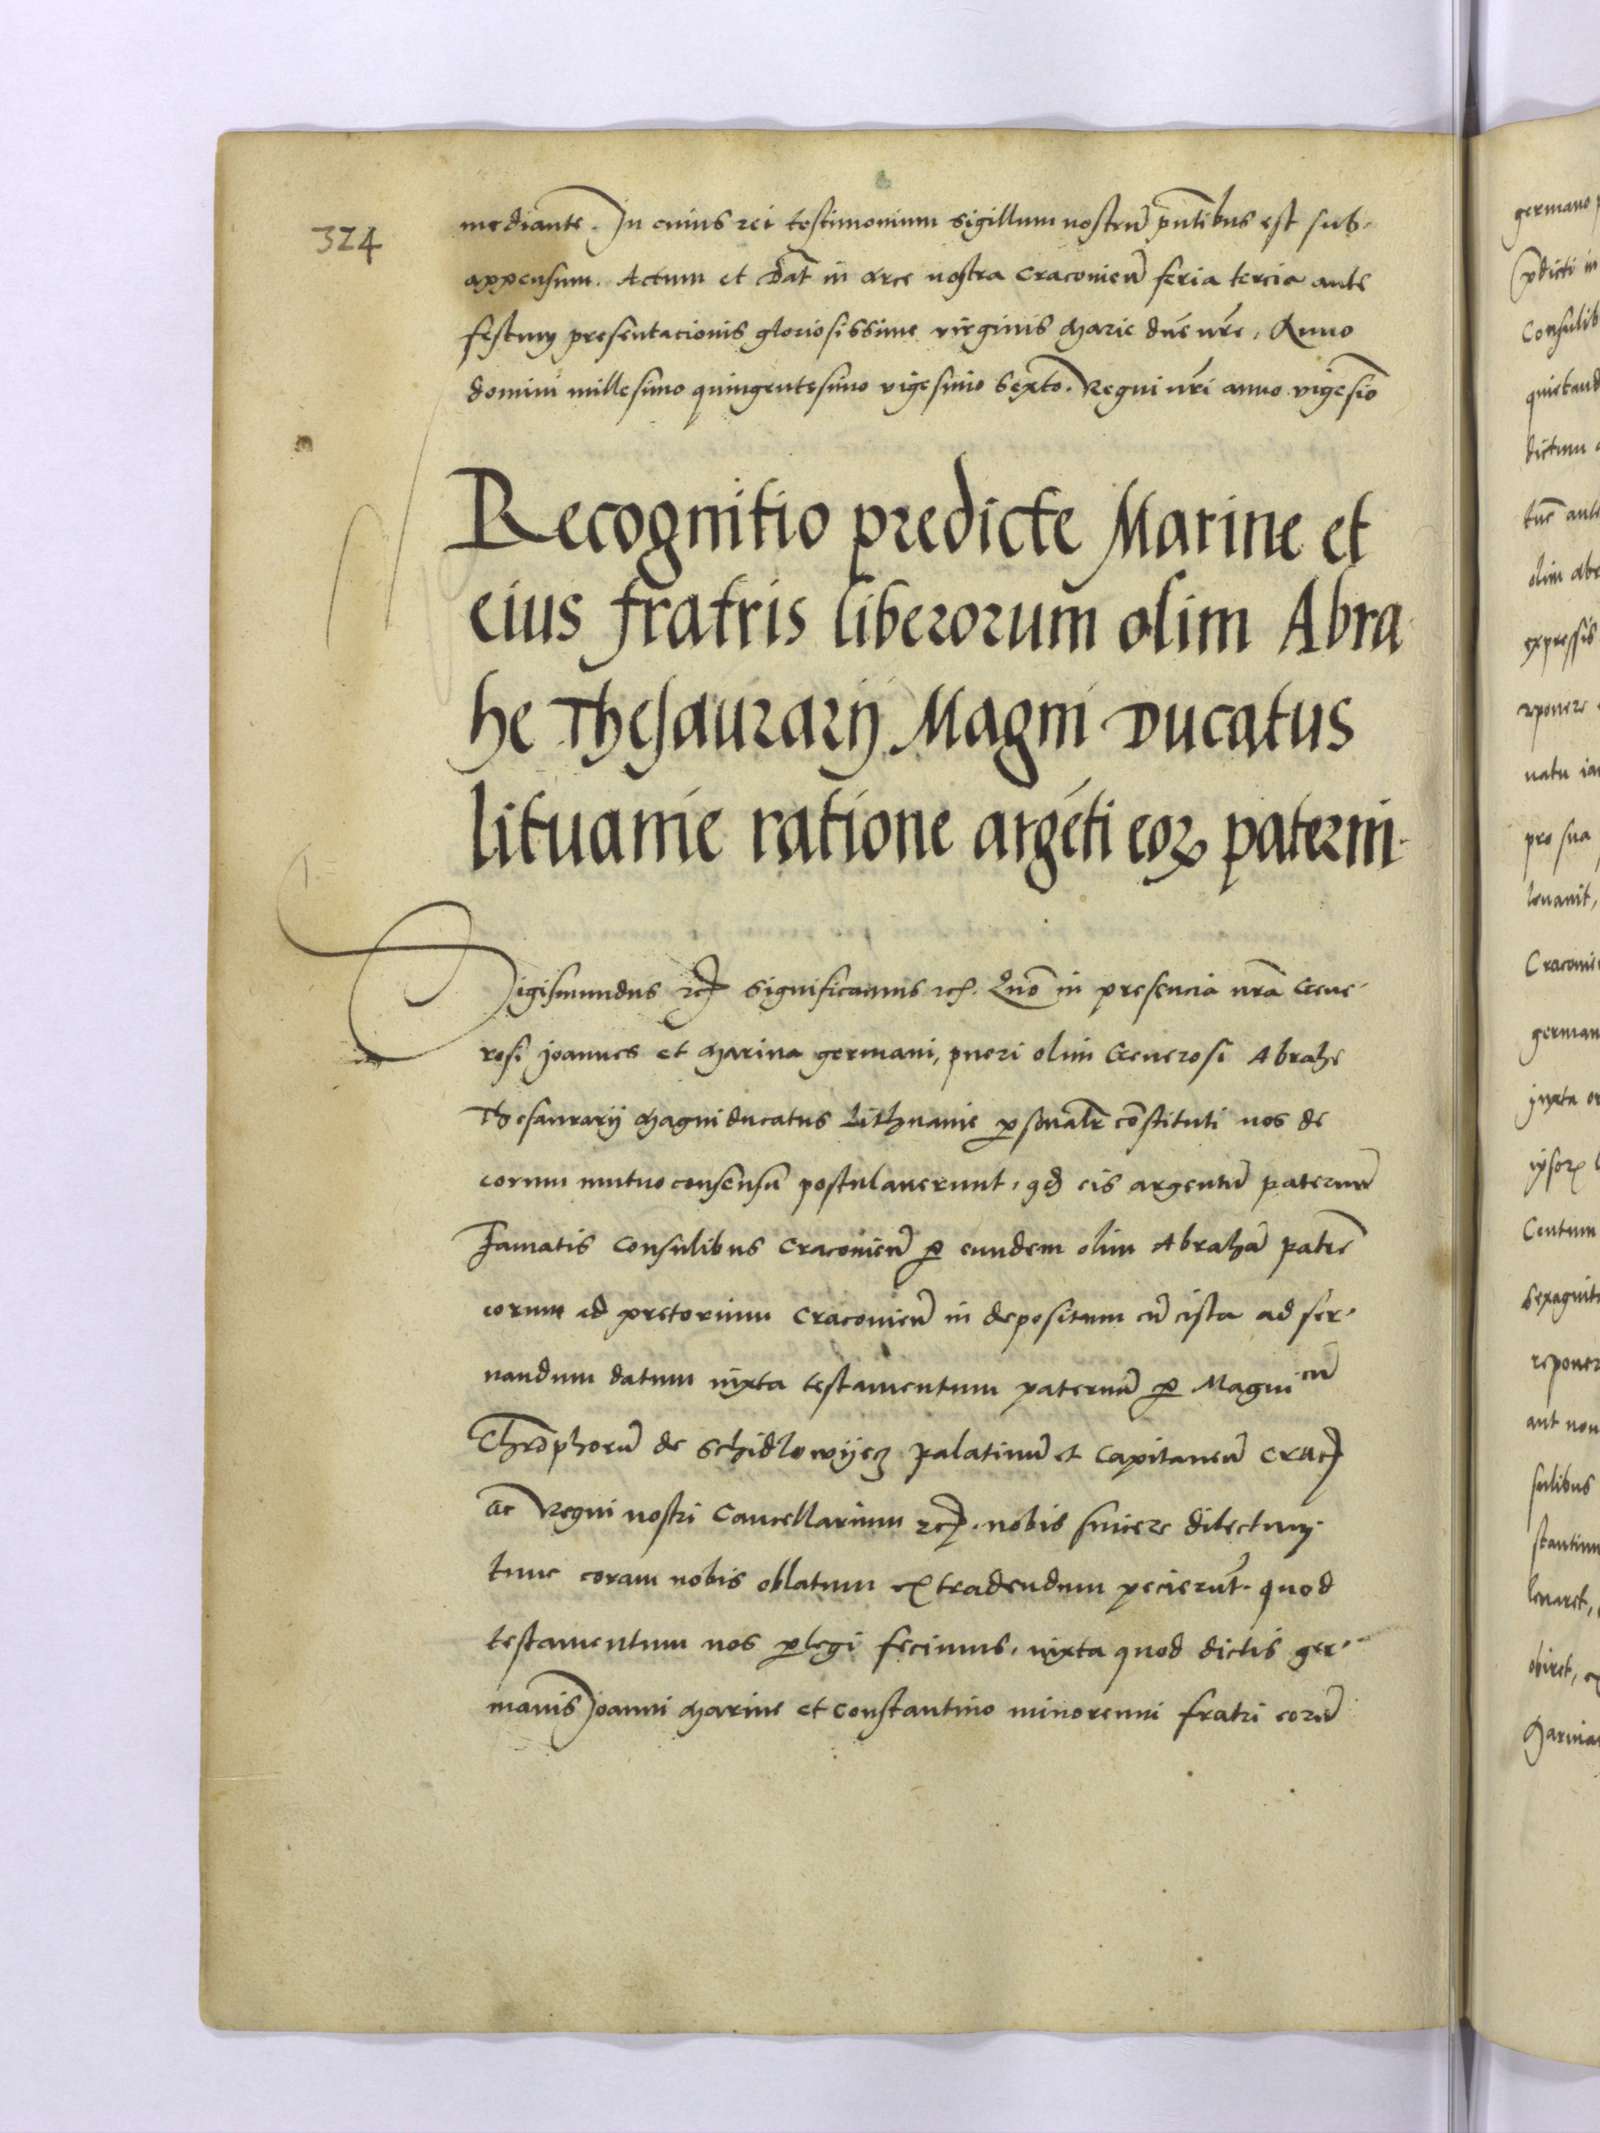 324
mediante. In cuius rei testimonium sigillum nostrũ pñtibus est sub-
appensum. Actum et Dat̃ in Arce nostra Cracovieñ feria tercia ante
festum presentacionis gloriosissime virginis Marie dñe nr̃e, Anno
domini millesimo quingentesimo vigesimo sexto. Regni nr̃i anno vigesĩo
Recognitio predicte Marine et
eius fratris liberorum olim Abra
he Thesaurarij Magni Ducatus
lituanie ratione argẽti eoꝝ paterni.
Sigismundus ꝛc̃ Significamus ꝛc̃. Quõ in presencia nr̃a Gene-
rosi Joannes et Marina germani, pueri olim Generosi Abrahe
Thesaurarij Magni ducatus Lithuanie ꝑsonalr̃ cõstituti nos de
eorum mutuo consensu postulaverunt, qđ eis argentũ paternũ
Famatis Consulibus Cracovieñ ꝑ eundem olim Abrahã patrẽ
eorum ad pretorium Cracovieñ in depositum cũ cista ad ser-
vandum datum iuxta testamentum paternũ ꝑ Magnicũ
Chrõphorũ de Schidlowyecz palatinũ et Capitaneũ Crac̃
ac Regni nostri Cancellarium ꝛc̃. nobis sincere dilectum
tunc coram nobis oblatum extradendum pecierũt. quod
testamentum nos ꝑlegi fecimus, iuxta quod dictis ger-
manis Joanni Marine et Constantino minorenni fratri eorũ
germano
p̃dicti in
Consulib
quietand
dictum
olim abr
expressis
natu
pro sua
levavit,
Cracovi
german
Juxta
ipsoꝝ
Centum
reponer
aut non
sulibus
levaret,
obiret,